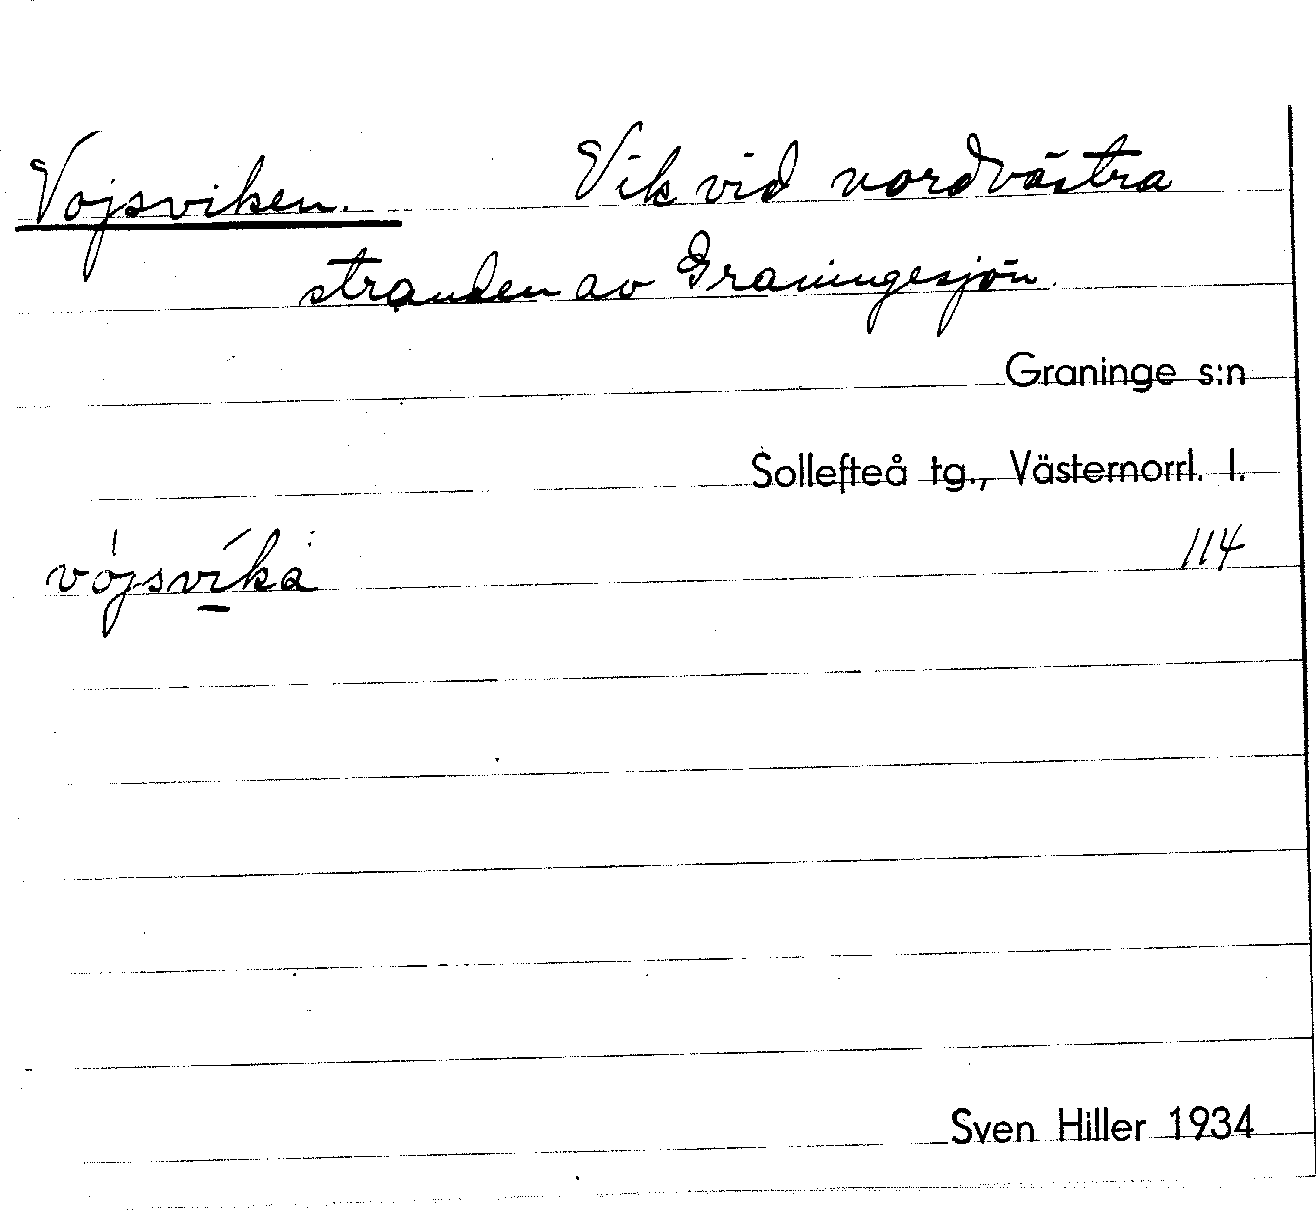 Vojsviken. Vik vid nordvästra
stranden av Graningesjön.
Graninge s:n
Sollefteå tg., Västernorrl. l.
114
Sven Hiller 1934